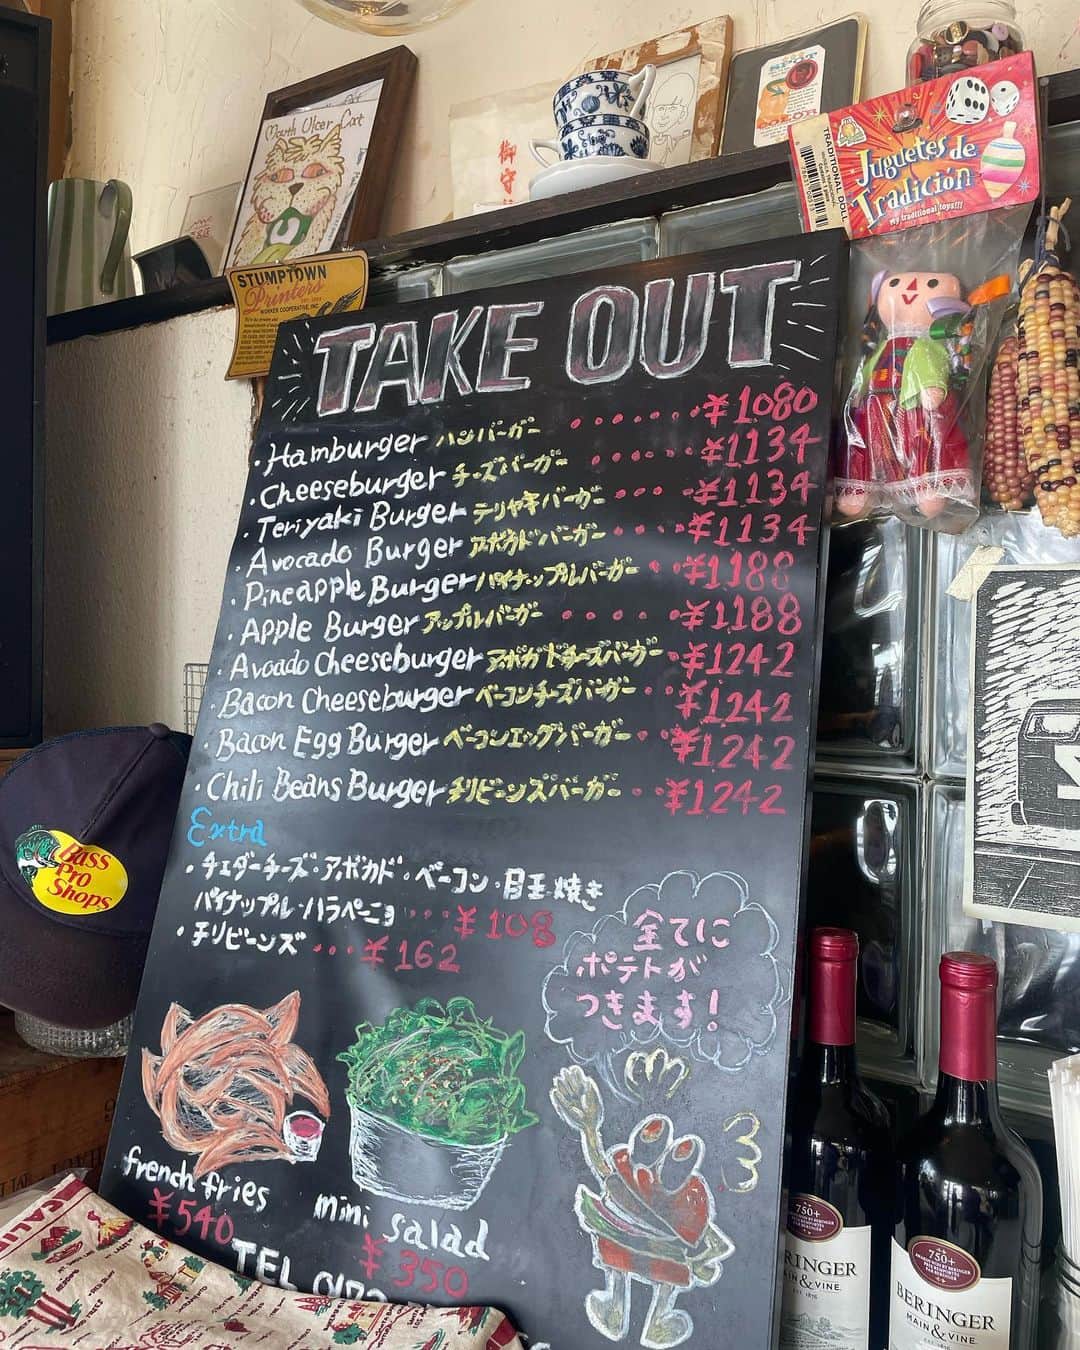 Mouth Ulcer Cat
御守
SPOT
COLOR
TRADITIONAL DOLL
Juguetes de
Tradición
My traditional toys!!!
STUMPTOWN
Printers
WORKER COOPERATIVE, INC.
TAKE OUT
・Hamburger ハンバーガー ・・・・・・・¥1080
・Cheeseburger チーズバーガー ・・・・・・¥1134
・Teriyaki Burger テリヤキバーガー・・・・・¥1134
・Avocado Burger アボカドバーガー・・・・・¥1134
・Pineapple Burger パイナップルバーガー・・¥1188
・Apple Burger アップルバーガー・・・・・¥1188
・Avocado Cheeseburger アボガドチーズバーガー・・¥1242
・Bacon Cheeseburger ベーコンチーズバーガー・・¥1242
・Bacon Egg Burger ベーコンエッグバーガー・・¥1242
・Chili Beans Burger チリビーンズバーガー・・¥1242
Extra
・チェダーチーズ・アボカド・ベーコン・目玉焼き
パイナップル・ハラペーニョ・・・¥108
・チリビーンズ・・・¥162
全てに
ポテトが
つきます!
french fries
¥540
mini salad
¥350
TEL 0172
Bass
Pro
Shops
750+
BERINGER
MAIN & VINE
EST. 1876
750+
BERINGER
MAIN & VINE